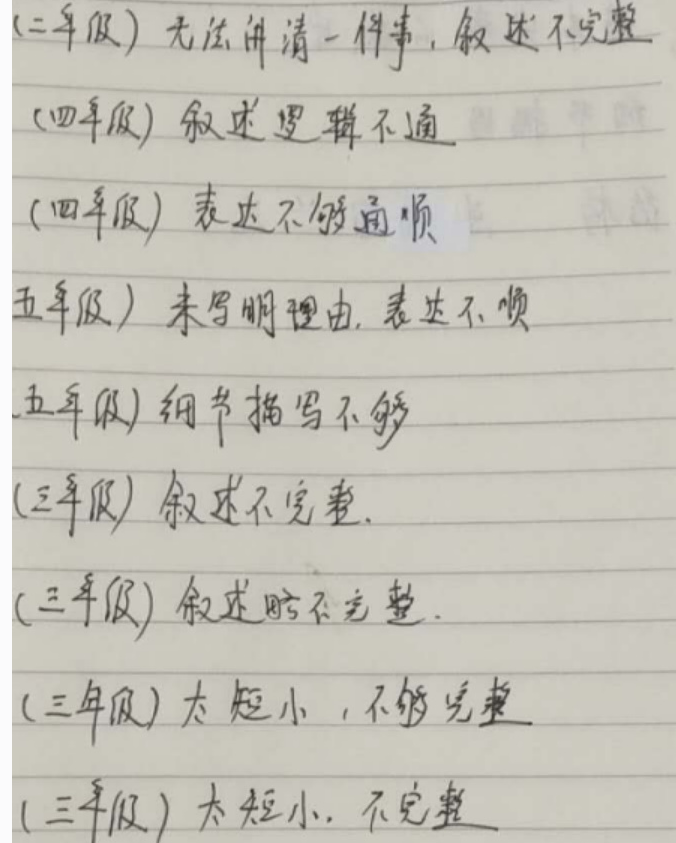 (二年级) 无法讲清一件事, 叙述不完整
(四年级) 叙述逻辑不通
(四年级) 表达不够通顺
五年级) 未写明理由, 表达不顺
五年级) 细节描写不够
(三年级) 叙述不完整.
(三年级) 叙述略不完整.
(三年级) 太短小, 不够完整
(三年级) 太短小. 不完整